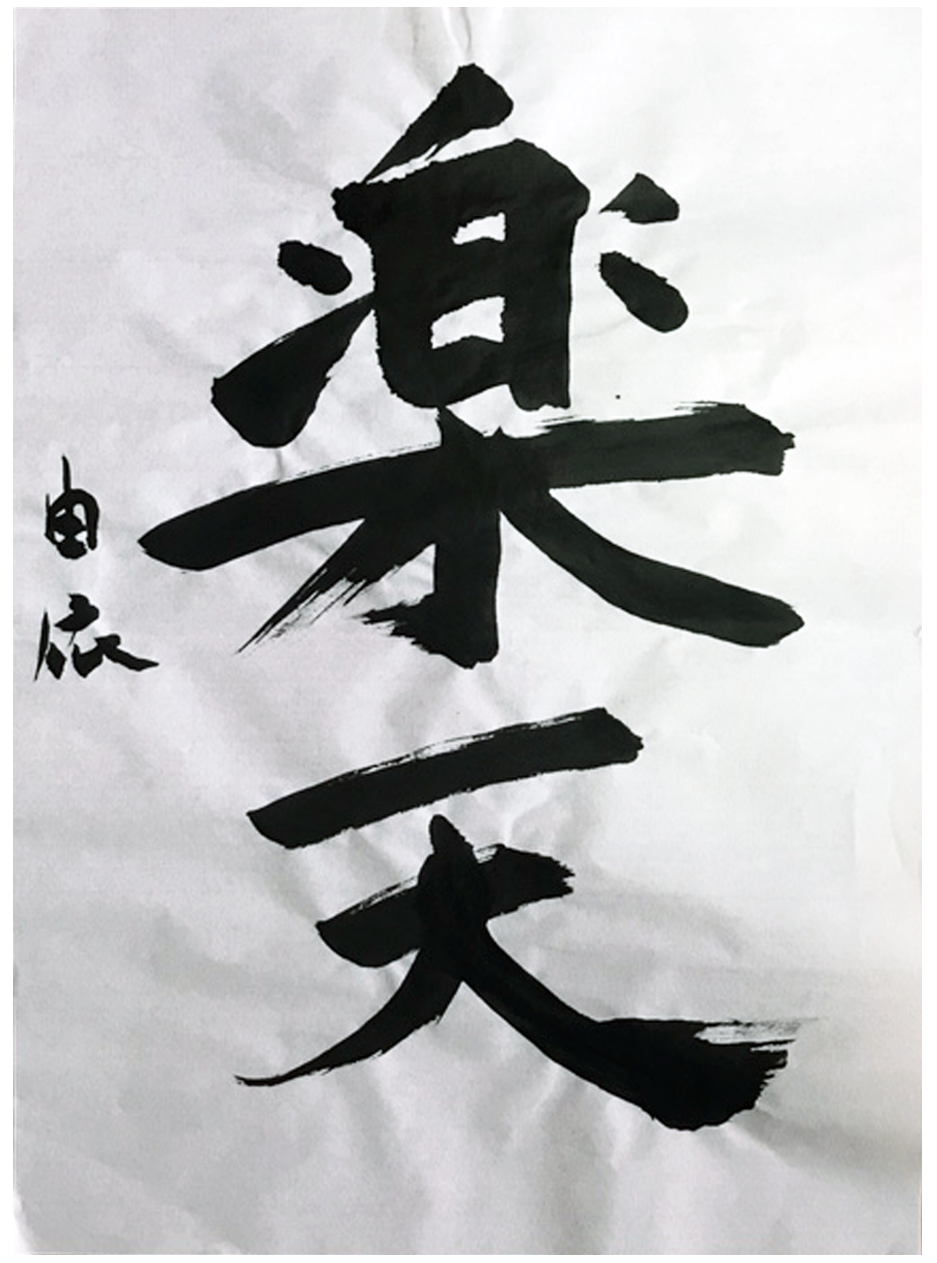 楽天
由依